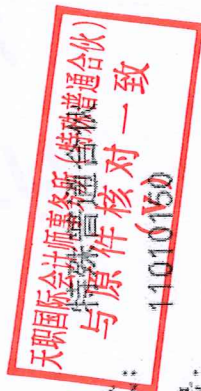 天职国际会计师事务所(特殊普通合伙)
特殊普通合伙
与原件核对一致
11010150